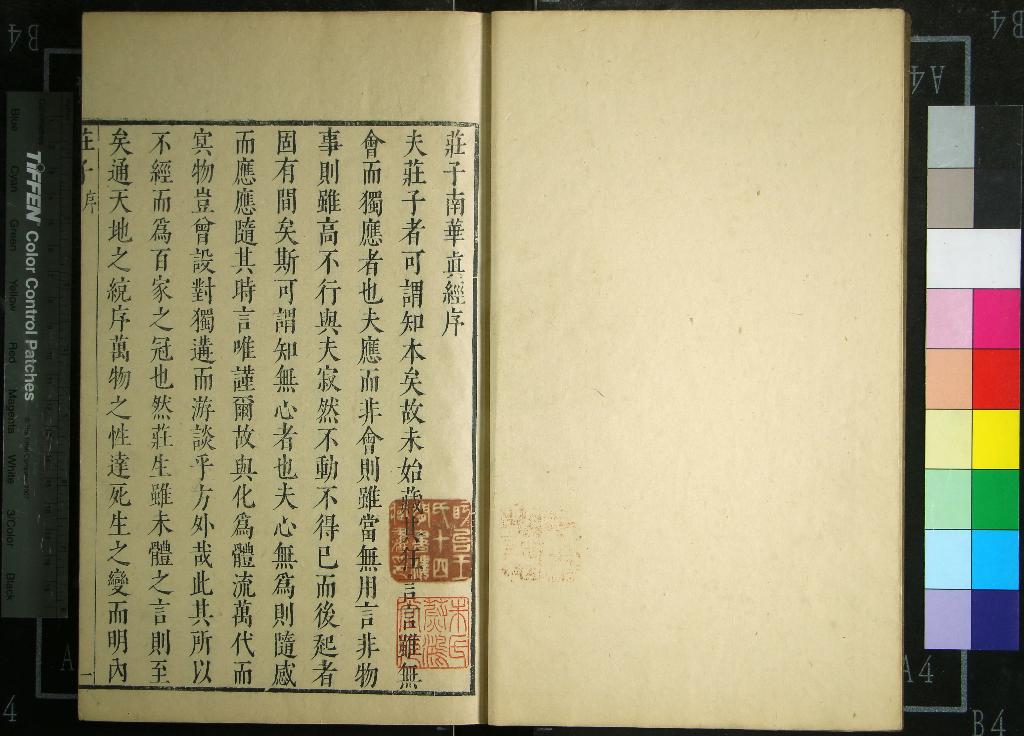 莊子南華眞經序
夫莊子者可謂知本矣故未始藏其狂言言雖無
會而獨應者也夫應而非會則雖當無用言非物
事則雖高不行與夫寂然不動不得已而後起者
固有間矣斯可謂知無心者也夫心無爲則隨感
而應應隨其時言唯謹爾故與化爲體流萬代而
㝠物豈曾設對獨遘而游談乎方外哉此其所以
不經而爲百家之冠也然莊生雖未體之言則至
矣通天地之統序萬物之性達死生之變而明內
莊子序
一
氏十四
朱氏
TIFFEN Color Control Patches
Blue
Cyan
Green
Yellow
Red
Magenta
White
3/Color
Black
B4
A4
B4
A4
A
4
B4